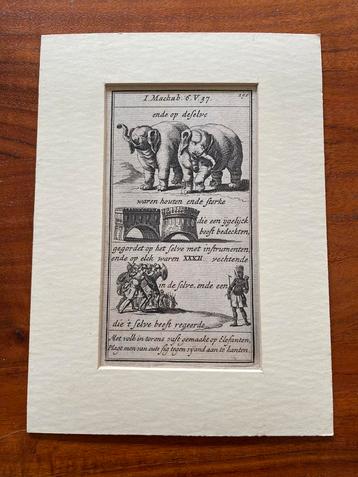 I. Machab. 6. V 37.
ende op deselve
waren houten ende starke
die een ygelijck
beest bedeckten,
gegordet op het selve met instrumenten,
ende op elck waren XXXII vechtende
in de selve, ende een
die 't selve beest regeerde
Met volk in torens vast gemaakt op Elefanten,
Plagt men van outs sig tegen vyand aan te kanten.